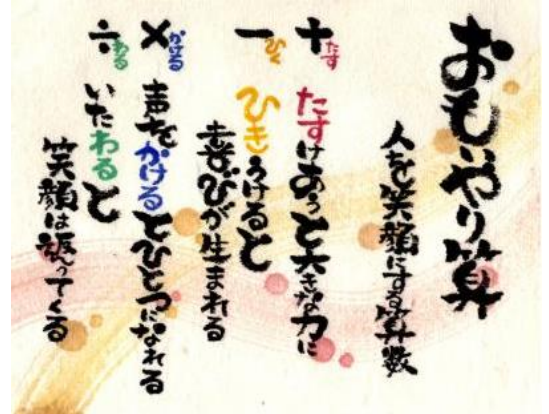 おもいやり算
人を笑顔にする算数
＋たす たすけあうと大きな力に
−ひく ひきうけると
喜びが生まれる
×かける 声をかけるとひとつになれる
÷わる いたわると
笑顔は返ってくる